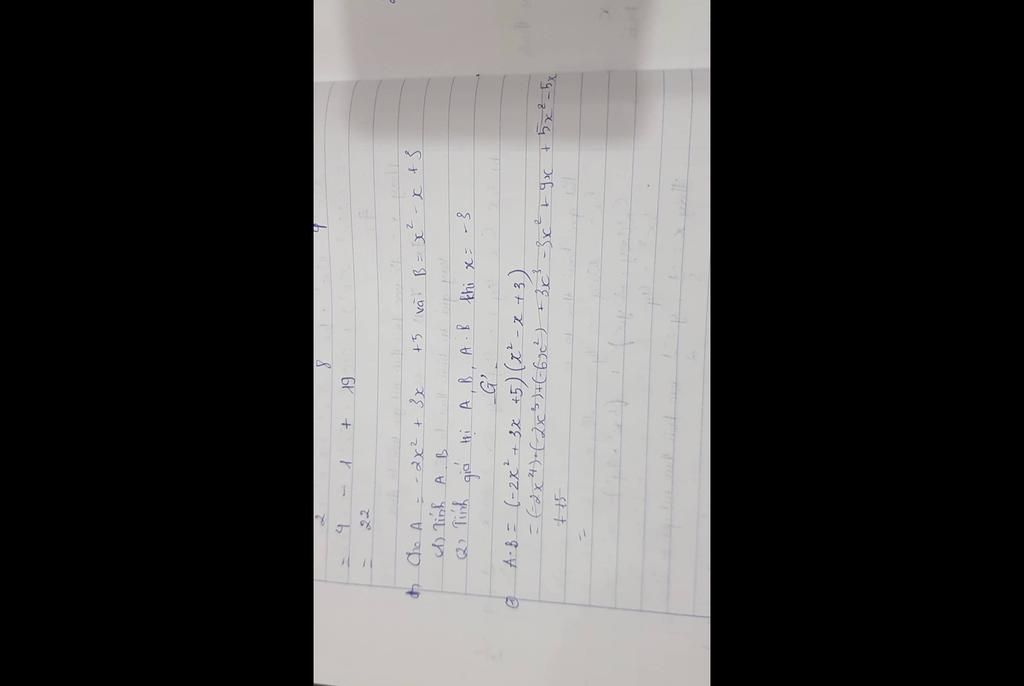 2 8 9
= 4 - 1 + 19
= 22
b) Cho A = -2x² + 3x +5 và B = x² - x + 3
(1) Tính A.B
(2) Tính giá trị A, B, A.B khi x = -3
G'
A.B = (-2x² + 3x +5)(x² - x +3)
= (-2x⁴)+(-2x³)+(-6x²) + 3x³ - 3x² + 9x + 5x² - 5x
+15
=